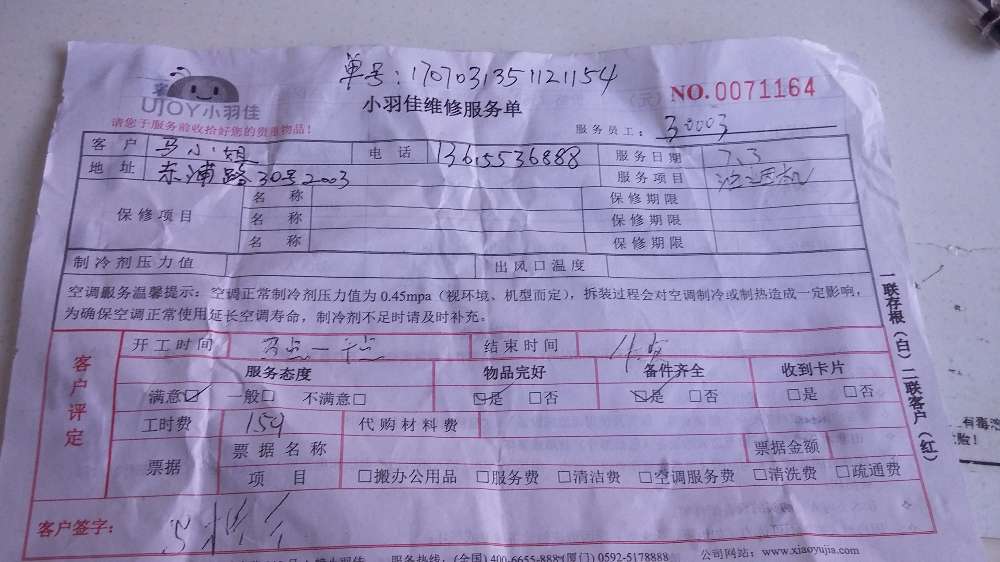 单号：170703135112154
UJOY小羽佳
小羽佳维修服务单
NO.0071164
请您于服务前收拾好您的贵重物品！
服务员工：30003
客户 马小姐 电话 13615536888 服务日期 7.3
地址 东浦路30号2003 服务项目
保修项目 名称 保修期限
名称 保修期限
名称 保修期限
制冷剂压力值 出风口温度
空调服务温馨提示：空调正常制冷剂压力值为0.45mpa（视环境、机型而定），拆装过程会对空调制冷或制热造成一定影响，
为确保空调正常使用延长空调寿命，制冷剂不足时请及时补充。
开工时间 结束时间
客户评定
服务态度 物品完好 备件齐全 收到卡片
满意☑ 一般□ 不满意□ ☑是 □否 ☑是 □否 □是 □否
工时费 159 代购材料费
票据 票据名称 票据金额
项目 □搬办公用品 □服务费 □清洁费 □空调服务费 □清洗费 □疏通费
客户签字：
服务热线：(全国)400-6655-888(厦门)0592-5178888 公司网站：www.xiaoyujia.com
一联存根（白）二联客户（红）
有毒